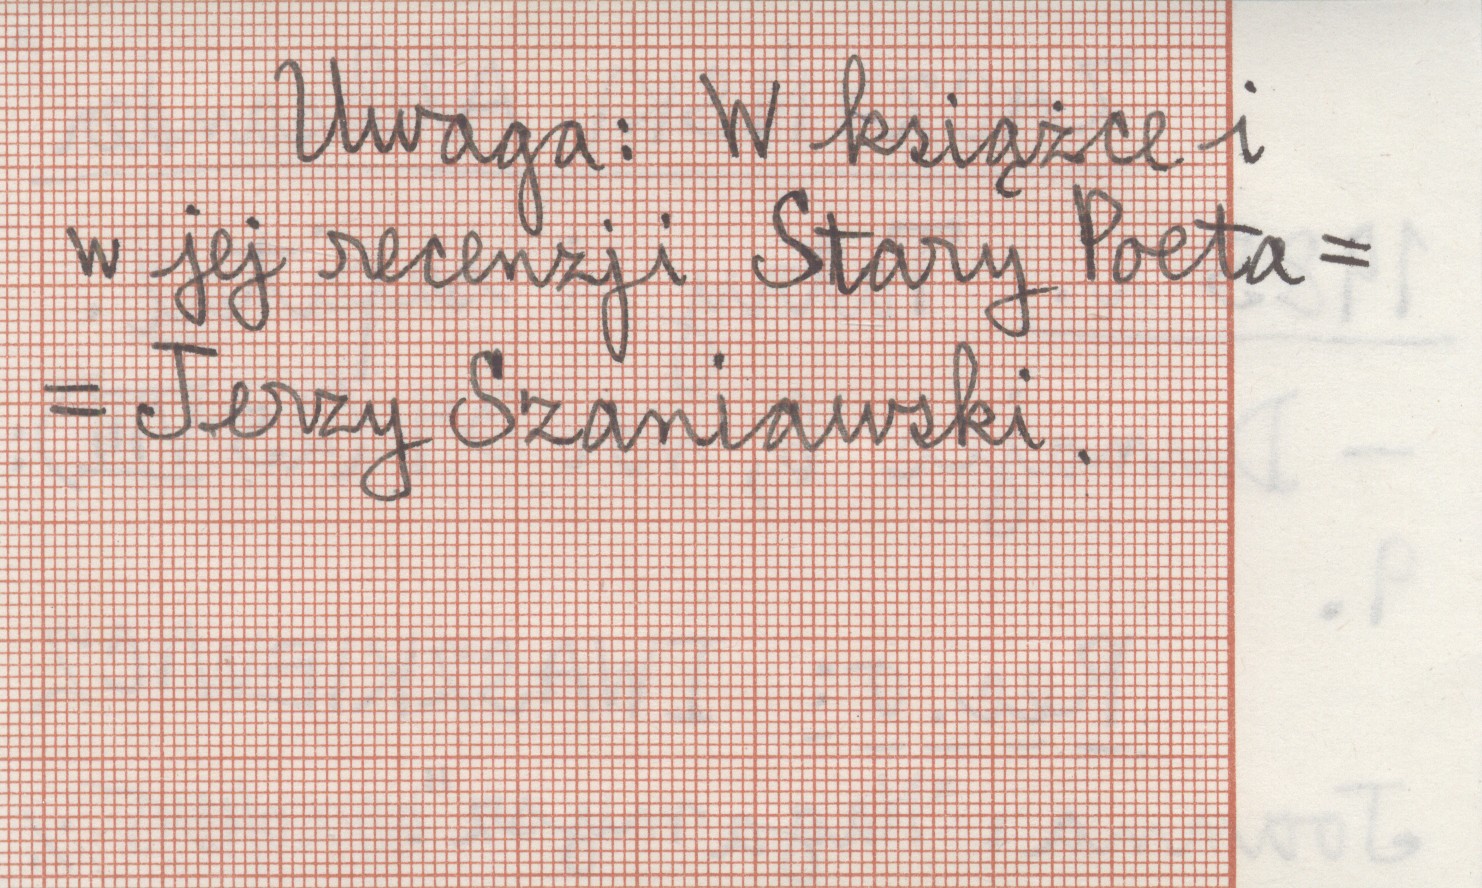 Uwaga: W książce i
w jej recenzji Stary Poeta =
= Jerzy Szaniawski.